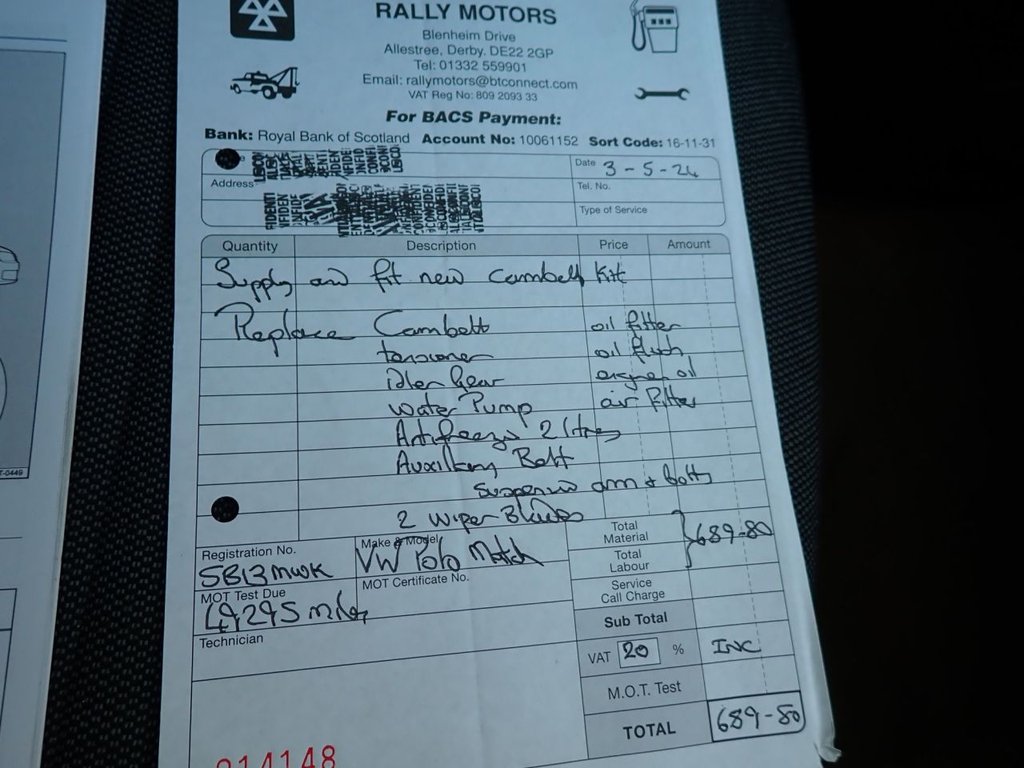 RALLY MOTORS
Blenheim Drive
Allestree, Derby. DE22 2GP
Tel: 01332 559901
Email: rallymotors@btconnect.com
VAT Reg No: 809 2093 33
For BACS Payment:
Bank: Royal Bank of Scotland Account No: 10061152 Sort Code: 16-11-31
Date 3-5-24
Address
Tel. No.
Type of Service
Quantity Description Price Amount
Supply and fit new Cambelt Kit
Replace Cambelt oil filter
tensioner oil flush
idler Gear engine oil
water Pump air filter
Antifreeze 2 litres
Auxiliary Belt
Suspension arm & bolts
2 Wiper Blades
Registration No. Make & Model
SB13MWK VW Polo Match
MOT Test Due MOT Certificate No.
49295 miles
Technician
Total Material
Total Labour 689-80
Service Call Charge
Sub Total
VAT 20 % INC
M.O.T. Test
TOTAL 689-80
014148
T-0449